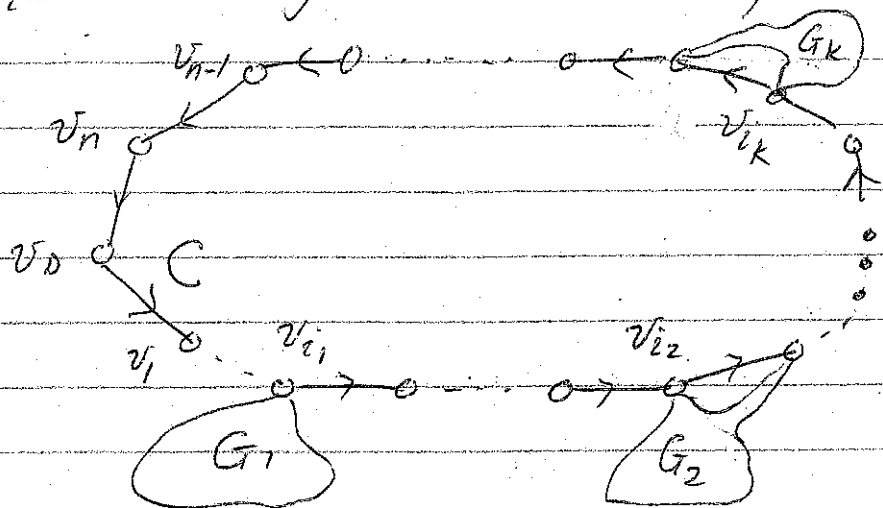 v_{n-1}
G_k
v_n
v_{i_k}
v_0
C
v_1
v_{i_1}
v_{i_2}
G_1
G_2